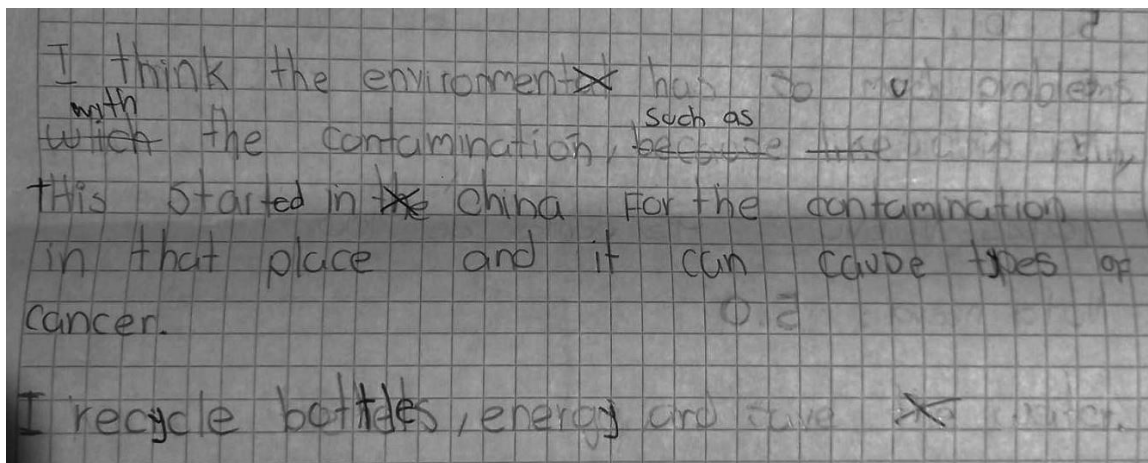 I think the environment has so much problems
with the contamination, such as
this started in china For the contamination
in that place and it can cause types of
cancer.
I recycle bottles, energy and save water.